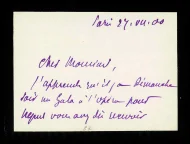 Paris 27.VII.00
Cher Monsieur,
J'apprends qu'il y a Dimanche
soir un Gala à l'opéra pour
lequel vous avez dû recevoir